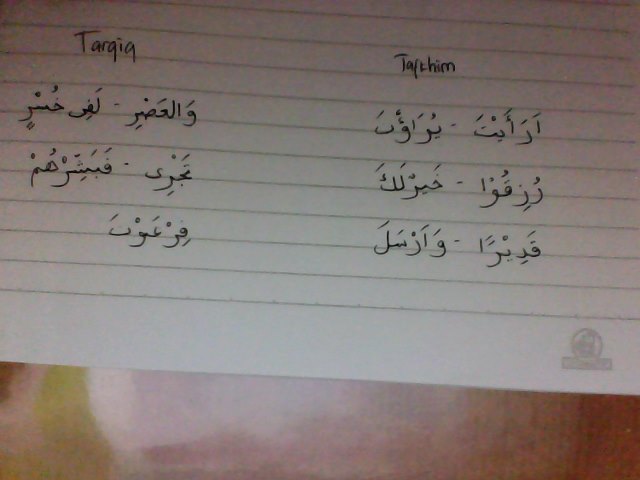 Tarqiq
وَالعَصْرِ - لَفِى خُسْرٍ
تَجْرِى - فَبَشِّرْهُمْ
فِرْعَوْنَ
Tafkhim
اَرَأَيْتَ - يُرَاؤُنَ
رُزِقُوْا - خَيْرٌلَكَ
قَدِيْرًا - وَاَرْسَلَ